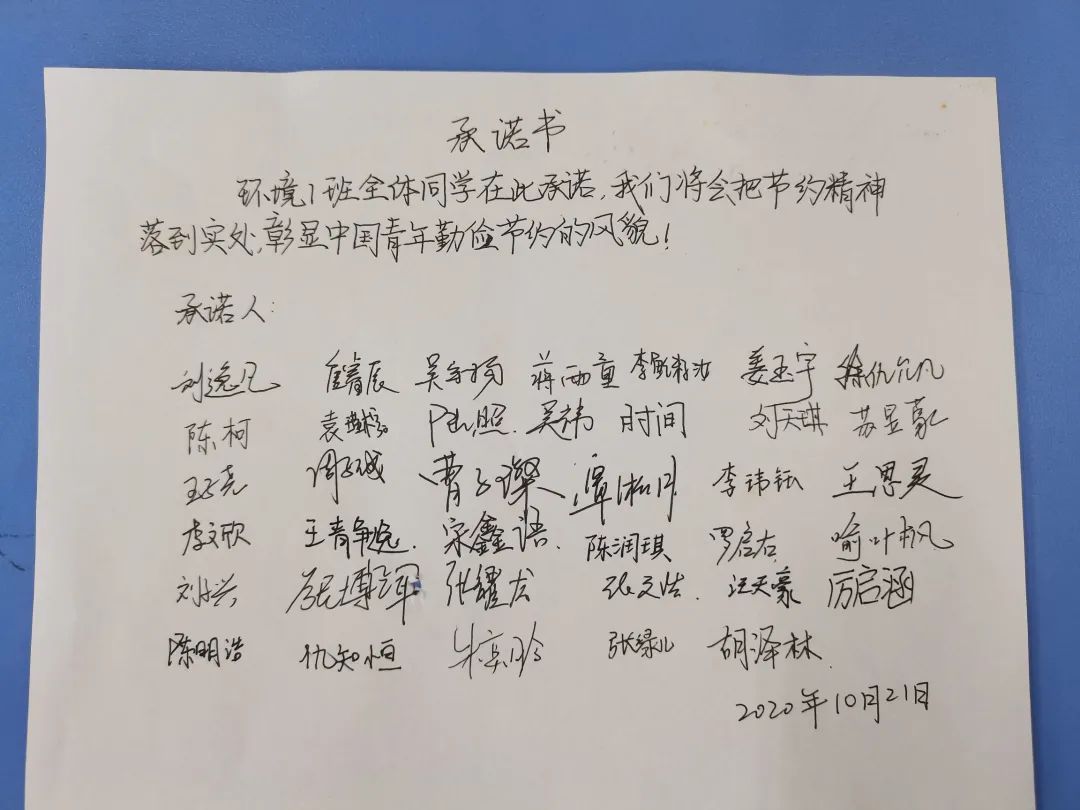 承诺书
环境1班全体同学在此承诺,我们将会把节约精神
落到实处,彰显中国青年勤俭节约的风貌!
承诺人:
刘逸凡 詹睿辰 蒋雨童 姜玉宇 徐仇允凡
陈柯 吴祎 时间 刘天琪 苏昱豪
曹子璨 覃淞月 李玮钰 王思灵
李文欣 王静逸 宋鑫语 陈润琪 罗启右 喻叶枫
张博军 张耀龙 张文浩 汪天豪 厉启涵
陈明浩 仇知恒 张绿儿 胡泽林
2020年10月21日